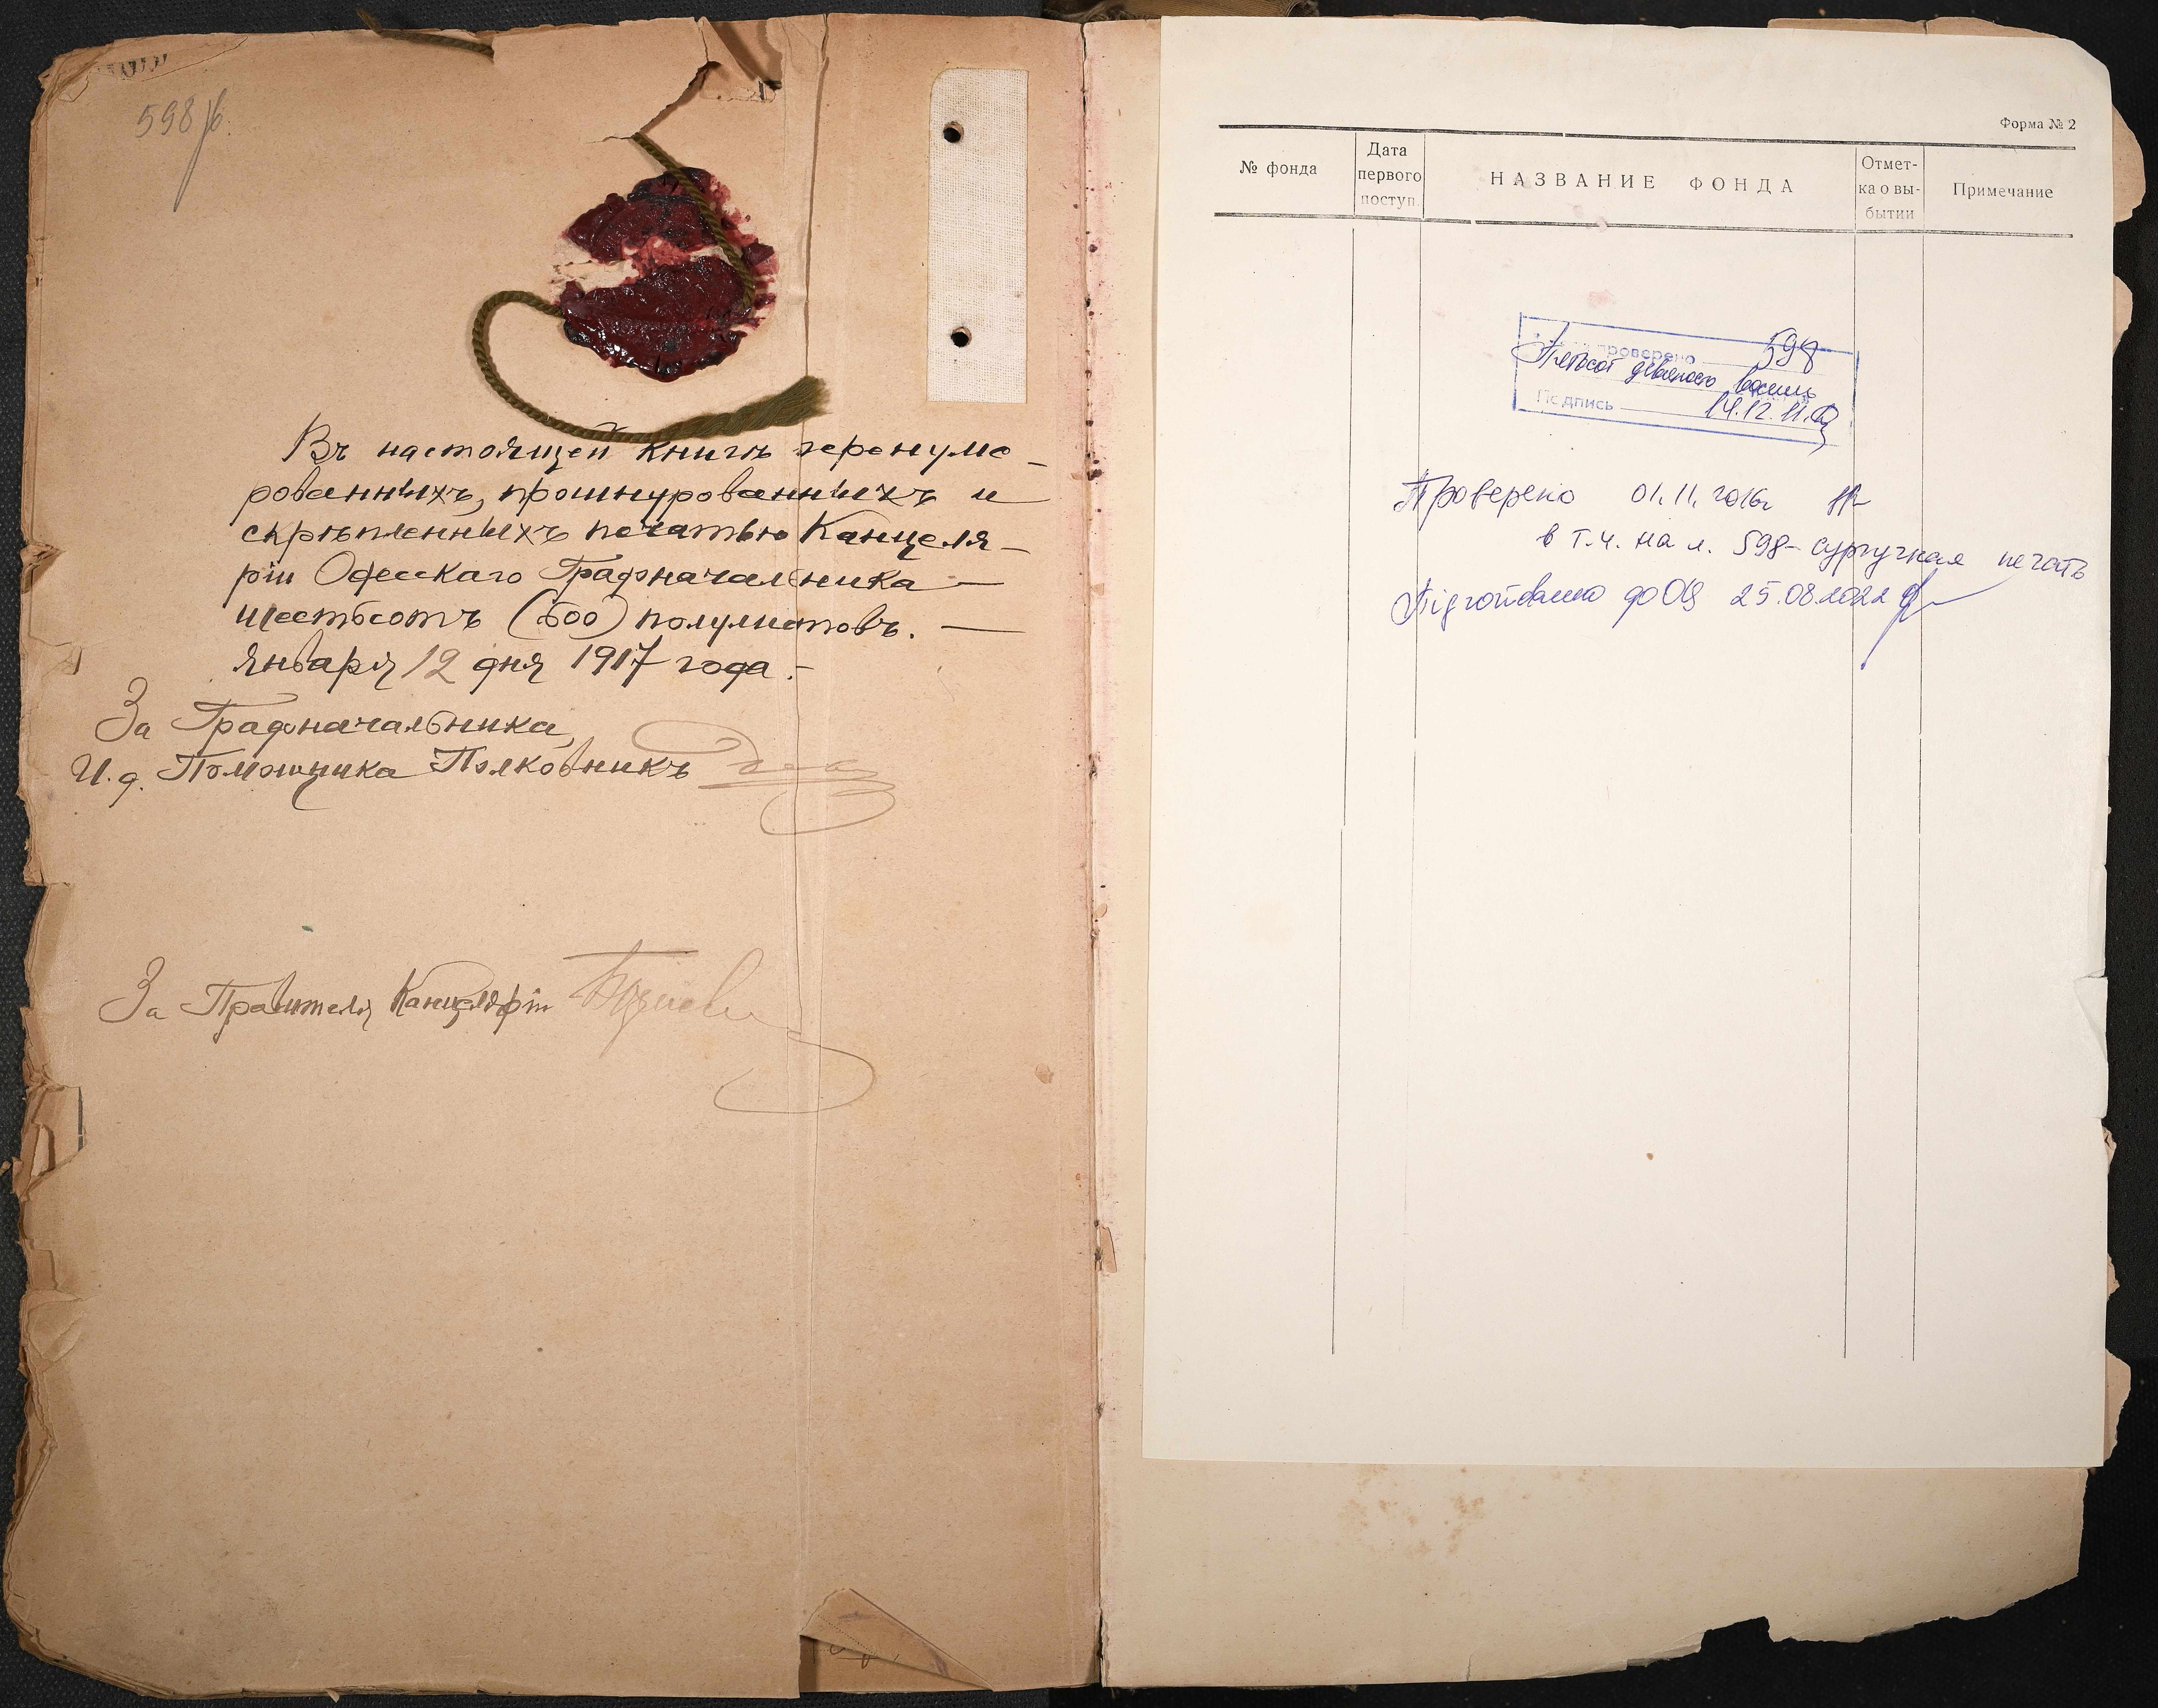 598 в.
Въ настоящей книгѣ перенуме-
рованныхъ, прошнурованныхъ и
скрѣпленныхъ печатью Канцеля-
ріи Одесскаго Градоначальника —
шестьсотъ (600) полулистовъ. —
Января 12 дня 1917 года. -
За Градоначальника,
И. д. Помощника Полковникъ
За Правителя Канцеляріи
Форма № 2
№ фонда
Дата
первого
поступ.
НАЗВАНИЕ ФОНДА
Отмет-
ка о вы-
бытии
Примечание
проверено 598
Пятьсот девяносто восемь
Подпись 14.12.11.
Проверено 01.11.2016г
в т.ч. на л. 598- сургучная печать
Підготовлено до ОЦ 25.08.2022